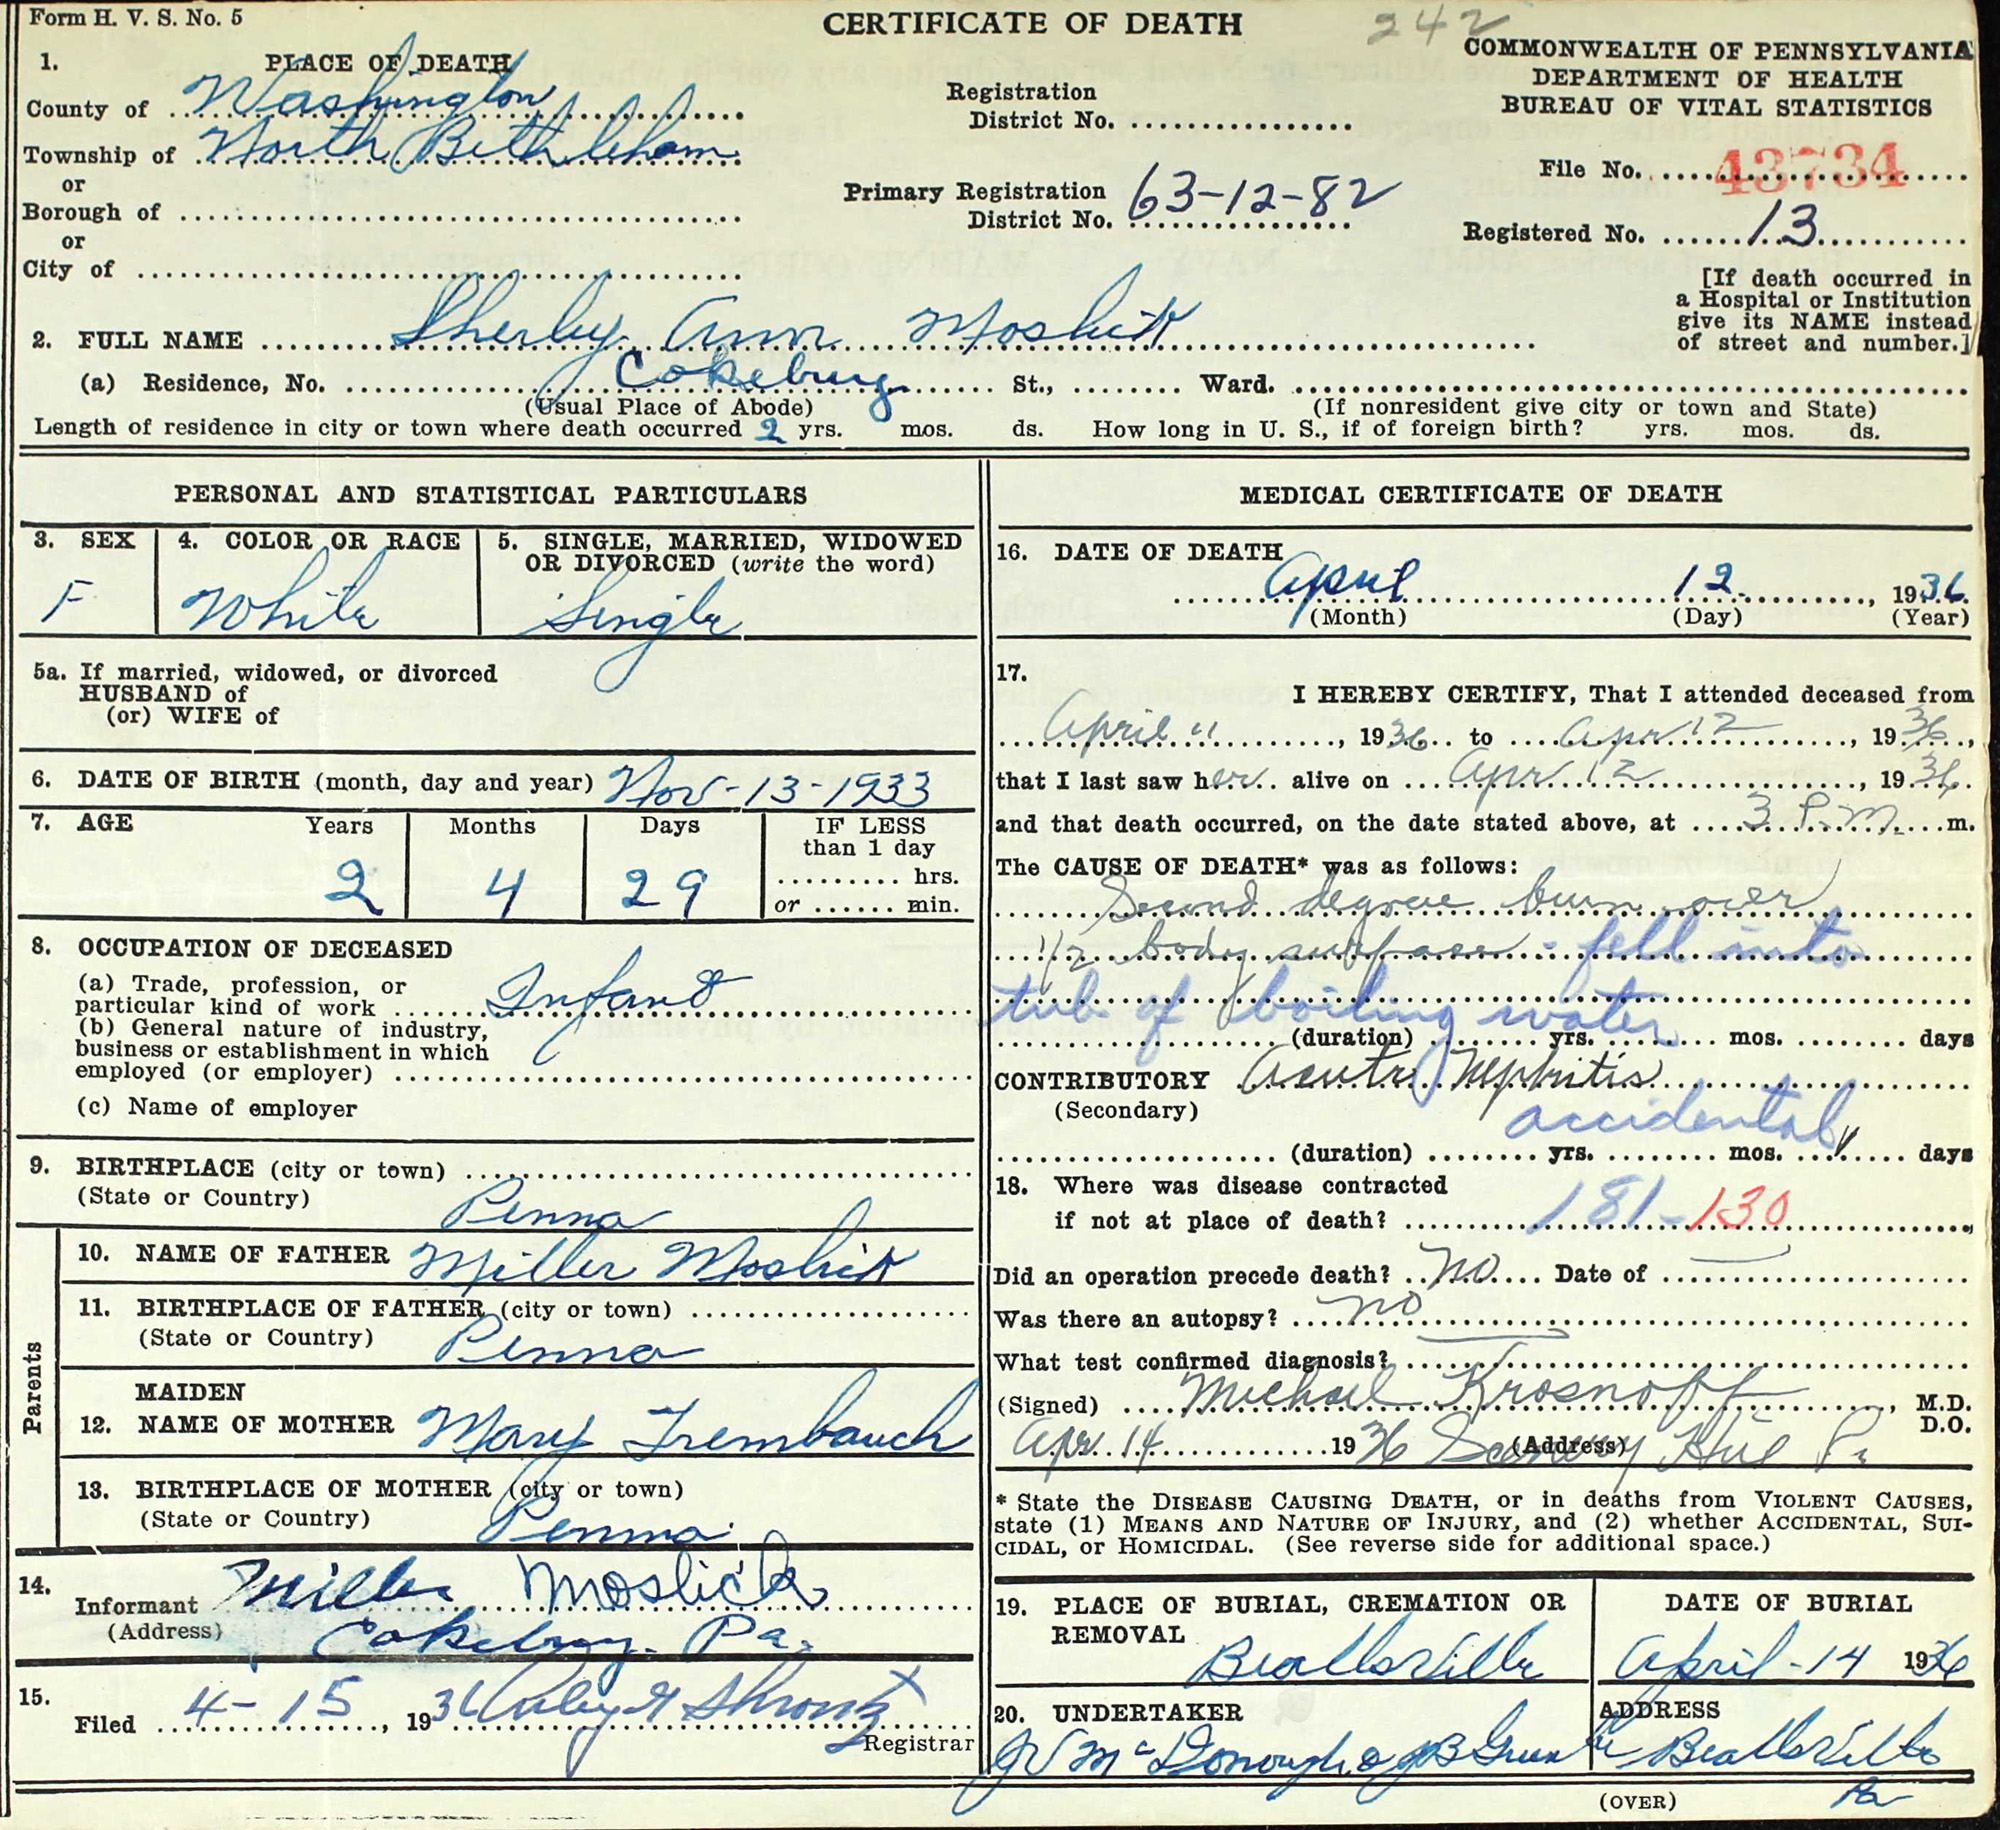 Form H. V. S. No. 5
CERTIFICATE OF DEATH
242
COMMONWEALTH OF PENNSYLVANIA
DEPARTMENT OF HEALTH
BUREAU OF VITAL STATISTICS
1. PLACE OF DEATH
County of Washington
Township of North Bethleham
or
Borough of
or
City of
Registration
District No.
Primary Registration
District No. 63-12-82
File No. 43734
Registered No. 13
[If death occurred in
a Hospital or Institution
give its NAME instead
of street and number.]
2. FULL NAME Sherley Ann Moslick
(a) Residence, No. Cokeburg St., Ward.
(Usual Place of Abode) (If nonresident give city or town and State)
Length of residence in city or town where death occurred 2 yrs. mos. ds. How long in U. S., if of foreign birth? yrs. mos. ds.
PERSONAL AND STATISTICAL PARTICULARS
3. SEX
F
4. COLOR OR RACE
White
5. SINGLE, MARRIED, WIDOWED
OR DIVORCED (write the word)
Single
5a. If married, widowed, or divorced
HUSBAND of
(or) WIFE of
6. DATE OF BIRTH (month, day and year) Nov-13-1933
7. AGE Years Months Days IF LESS
than 1 day
hrs.
or min.
2 4 29
8. OCCUPATION OF DECEASED
(a) Trade, profession, or
particular kind of work Infant
(b) General nature of industry,
business or establishment in which
employed (or employer)
(c) Name of employer
9. BIRTHPLACE (city or town)
(State or Country) Penna
Parents
10. NAME OF FATHER Miller Moslick
11. BIRTHPLACE OF FATHER (city or town)
(State or Country) Penna
MAIDEN
12. NAME OF MOTHER Mary Trembauch
13. BIRTHPLACE OF MOTHER (city or town)
(State or Country) Penna
14.
Informant Miller Moslick
(Address) Cokeburg. Pa.
15.
Filed 4-15, 1936
Registrar
MEDICAL CERTIFICATE OF DEATH
16. DATE OF DEATH
April 12, 1936
(Month) (Day) (Year)
17.
I HEREBY CERTIFY, That I attended deceased from
April 11, 1936 to Apr 12, 1936,
that I last saw her alive on Apr 12, 1936.
and that death occurred, on the date stated above, at 3 P.m. m.
The CAUSE OF DEATH* was as follows:
Second degree burn over
1/2 body surface - fell into
tub of boiling water
(duration) yrs. mos. days
CONTRIBUTORY Acute Nephritis
(Secondary) accidental
(duration) yrs. mos. days
18. Where was disease contracted
if not at place of death? 181-130
Did an operation precede death? No Date of
Was there an autopsy? no
What test confirmed diagnosis?
(Signed) Michael Krosnoff, M.D.
D.O.
Apr 14 1936 (Address) Scenery Hill Pa
* State the DISEASE CAUSING DEATH, or in deaths from VIOLENT CAUSES,
state (1) MEANS AND NATURE OF INJURY, and (2) whether ACCIDENTAL, SUI-
CIDAL, or HOMICIDAL. (See reverse side for additional space.)
19. PLACE OF BURIAL, CREMATION OR
REMOVAL
Beallsville
DATE OF BURIAL
April-14 1936
20. UNDERTAKER
McDonough & JB Green
ADDRESS
Beallsville
Pa
(OVER)